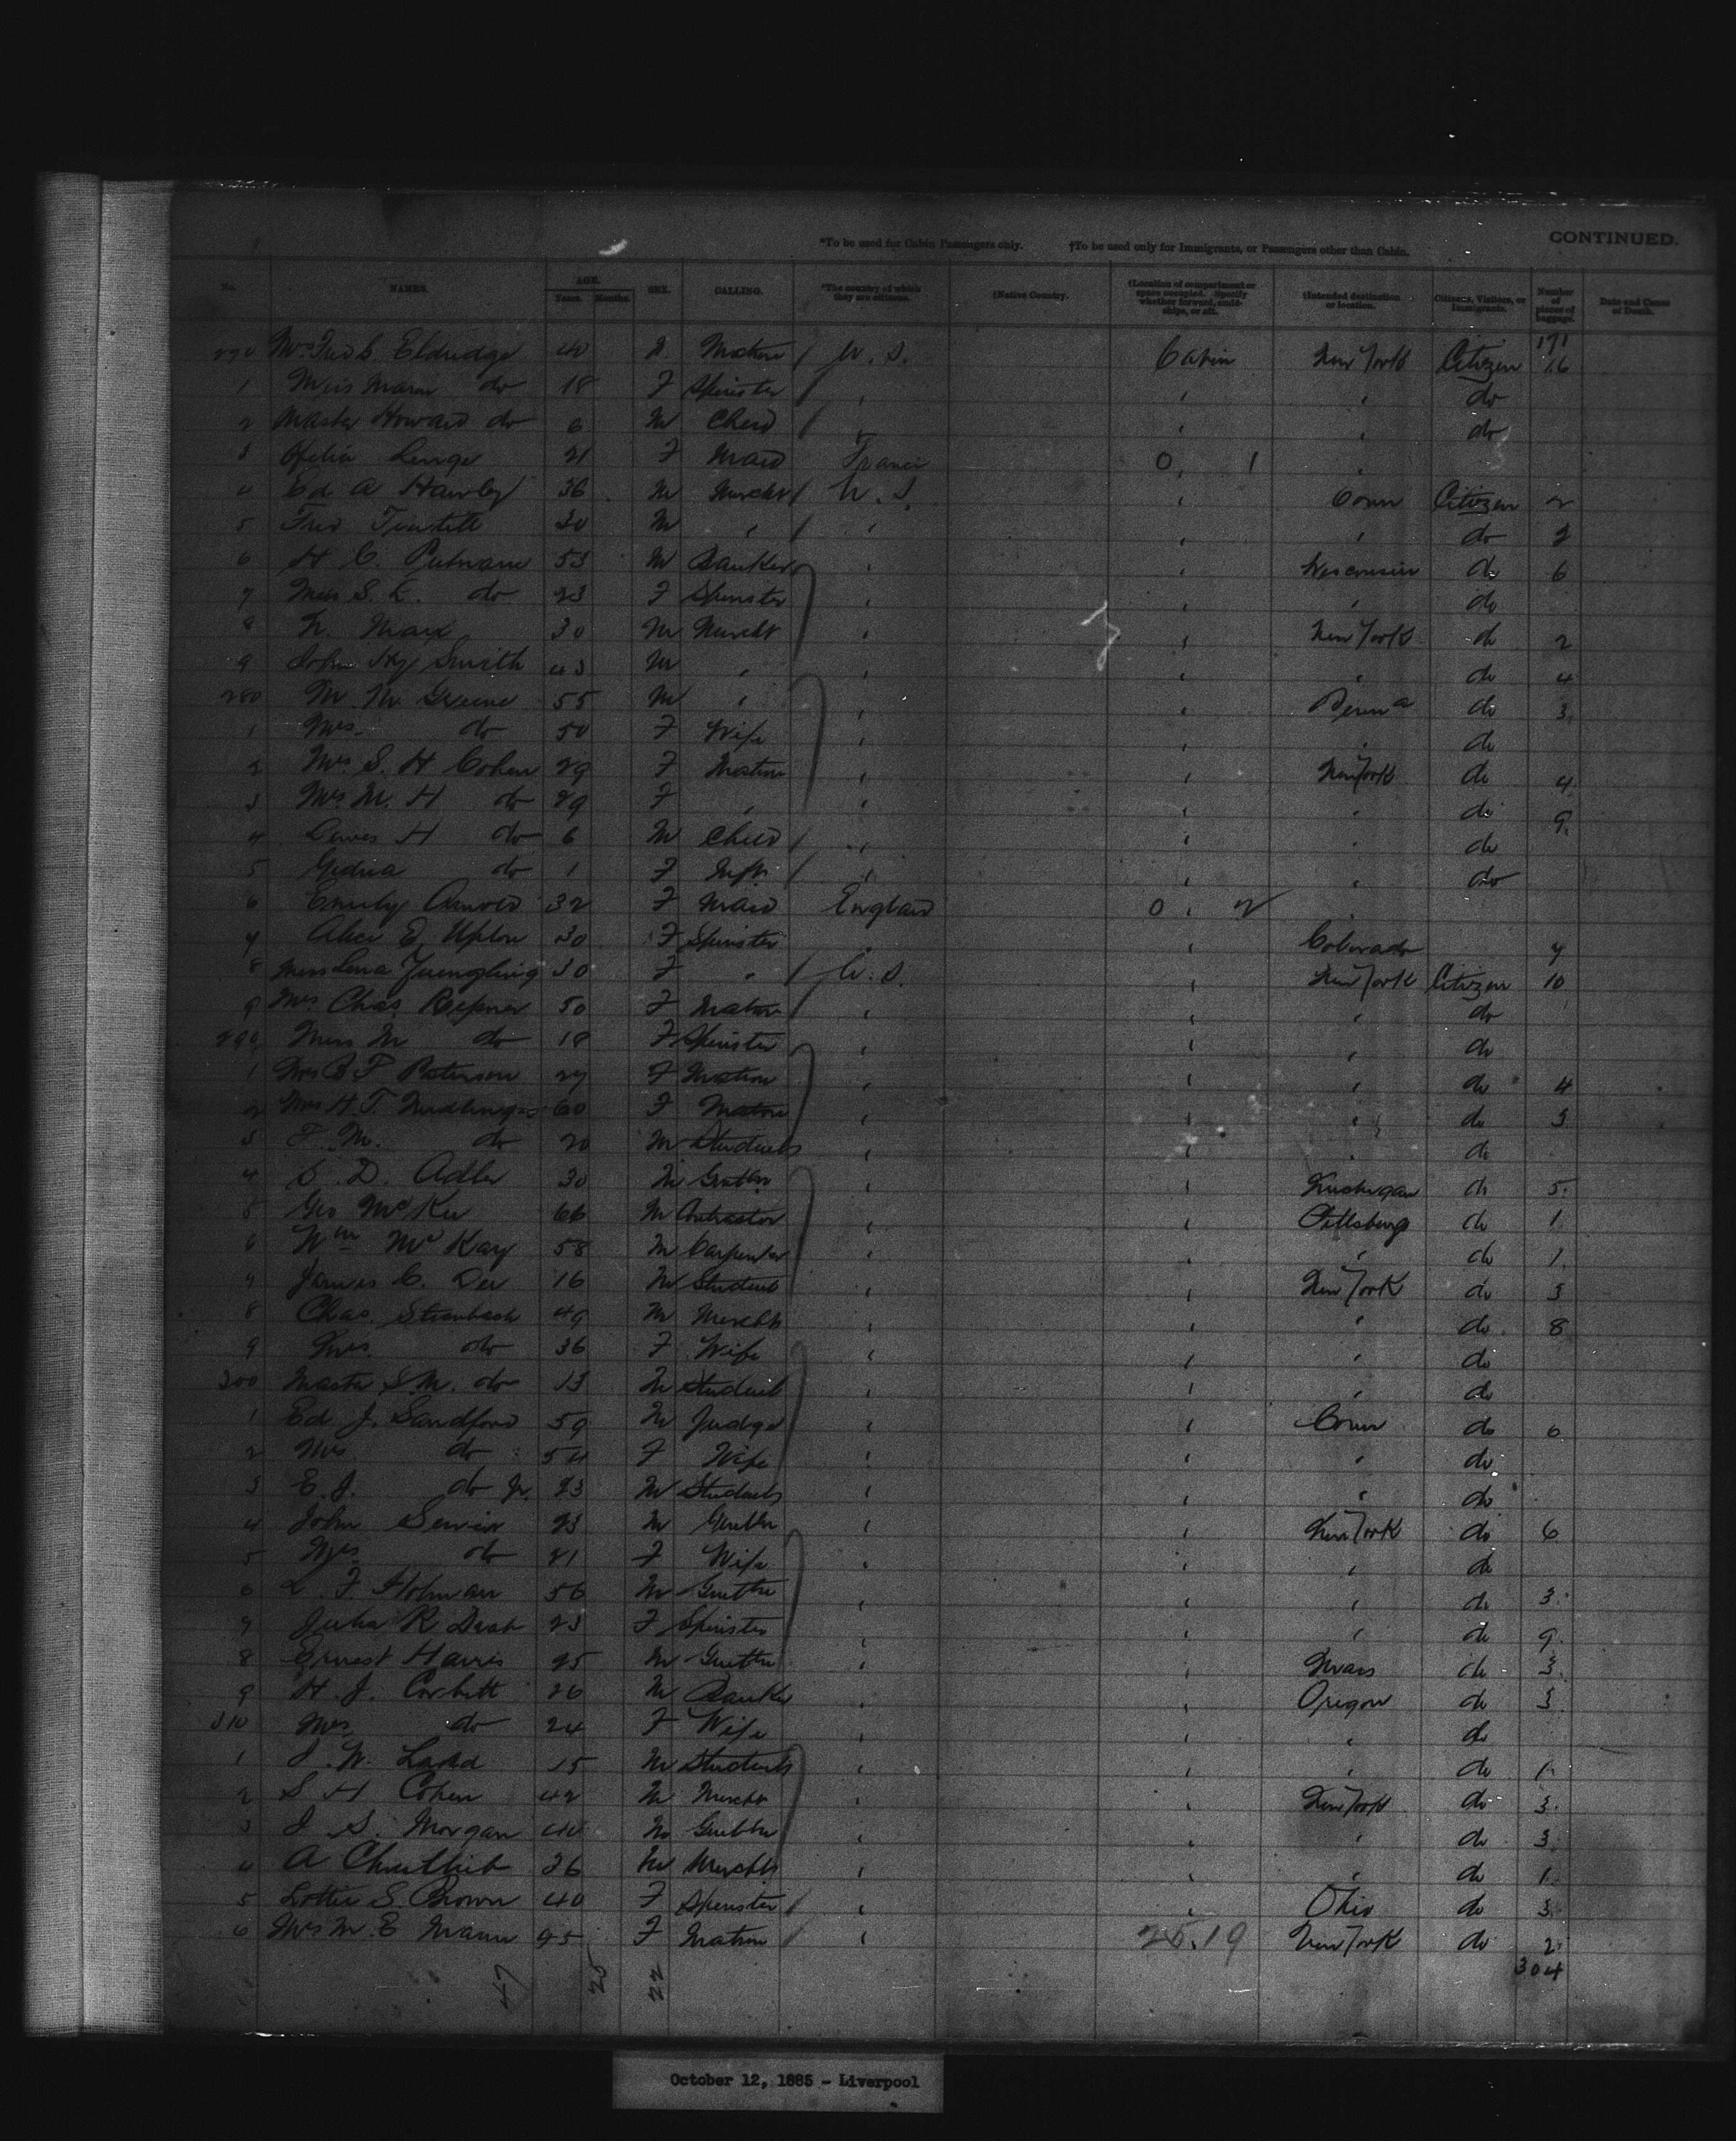 CONTINUED.
*To be used for Cabin Passengers only. †To be used only for Immigrants, or Passengers other than Cabin.
No. NAMES. AGE. Years. Months. SEX. CALLING. *The country of which they are citizens. †Native Country. †Location of compartment or space occupied. Specify whether forward, amidships, or aft. †Intended destination or location. Citizens, Visitors, or Immigrants. Number of pieces of baggage. Date and Cause of Death.
171
270 Mrs C. Eldredge 40 F Matron U.S. Cabin New York Citizen 16
1 Miss Marin do 18 F Spinster " " " do
2 Master Howard do 6 M Child " " " do
3 21 F Maid France 0 1 "
4 Ed A Hawley 36 M Mercht U.S. " Conn Citizen 2
5 Fred 30 M " " " " do 2
6 H C. Putnam 53 M Banker " " Wisconsin do 6
7 Miss S. E. do 23 F Spinster " " " do
8 Marx 30 M Mercht " " New York do 2
9 John Hy Smith 43 M " " " " do 4
280 M. M. Greene 55 M " " " Penna do 3
1 Mrs do 50 F Wife " " " do
2 Mrs. S. H Cohen 29 F Matron " " New York do 4
3 Mrs M. H do 29 F " " " " do 9
4 H do 6 M Child " " " do
5 do 1 F Inft " " " do
6 Emily Arnold 32 F Maid England 0 2
7 Alice E. Upton 30 F Spinster " " Colorado 7
8 Miss Lena Juengling 30 F " U.S. " New York Citizen 10
9 Mrs Chas Repner 50 F Matron " " " do
290 Miss M do 18 F Spinster " " " do
1 Mrs B F Paterson 27 F Matron " " " do 4
2 Mrs H. T. 60 F Matron " " " do 3
3 F. M. do 20 M Student " " " do
4 S. D. Adler 30 M Gentln " " Michigan do 5
5 Geo McKee 66 M Contractor " " Pittsburg do 1
6 Wm McKay 58 M Carpenter " " " do 1
7 James C. 16 M Student " " New York do 3
8 Chas. Steinbach 49 M Mercht " " " do 8
9 Mrs. do 36 F Wife " " " do
300 Master S. M. do 13 M Student " " " do
1 Ed J. Sandford 59 M Judge " " Conn do 6
2 Mrs do 54 F Wife " " " do
3 E. J. do Jr. 23 M Student " " " do
4 John 23 M Gentln " " New York do 6
5 Mrs do 21 F Wife " " " do
6 L. F. Holman 56 M Gentln " " " do 3
7 Julia R 23 F Spinster " " " do 9
8 Ernest Harris 25 M Gentln " " do 3
9 H. J. Corbett 26 M Banker " " Oregon do 3
310 Mrs do 24 F Wife " " " do
1 J. W. Ladd 15 M Student " " " do 1
2 S H Cohen 42 M Mercht " " New York do 3
3 J. S. Morgan 40 M Gentln " " " do 3
4 A 36 M Mercht " " " do 1
5 Lottie S. Brown 40 F Spinster " " Ohio do 3
6 Mrs M. E Mann 45 F Matron " 25.19 New York do 2
304
47 25 22
October 12, 1885 - Liverpool